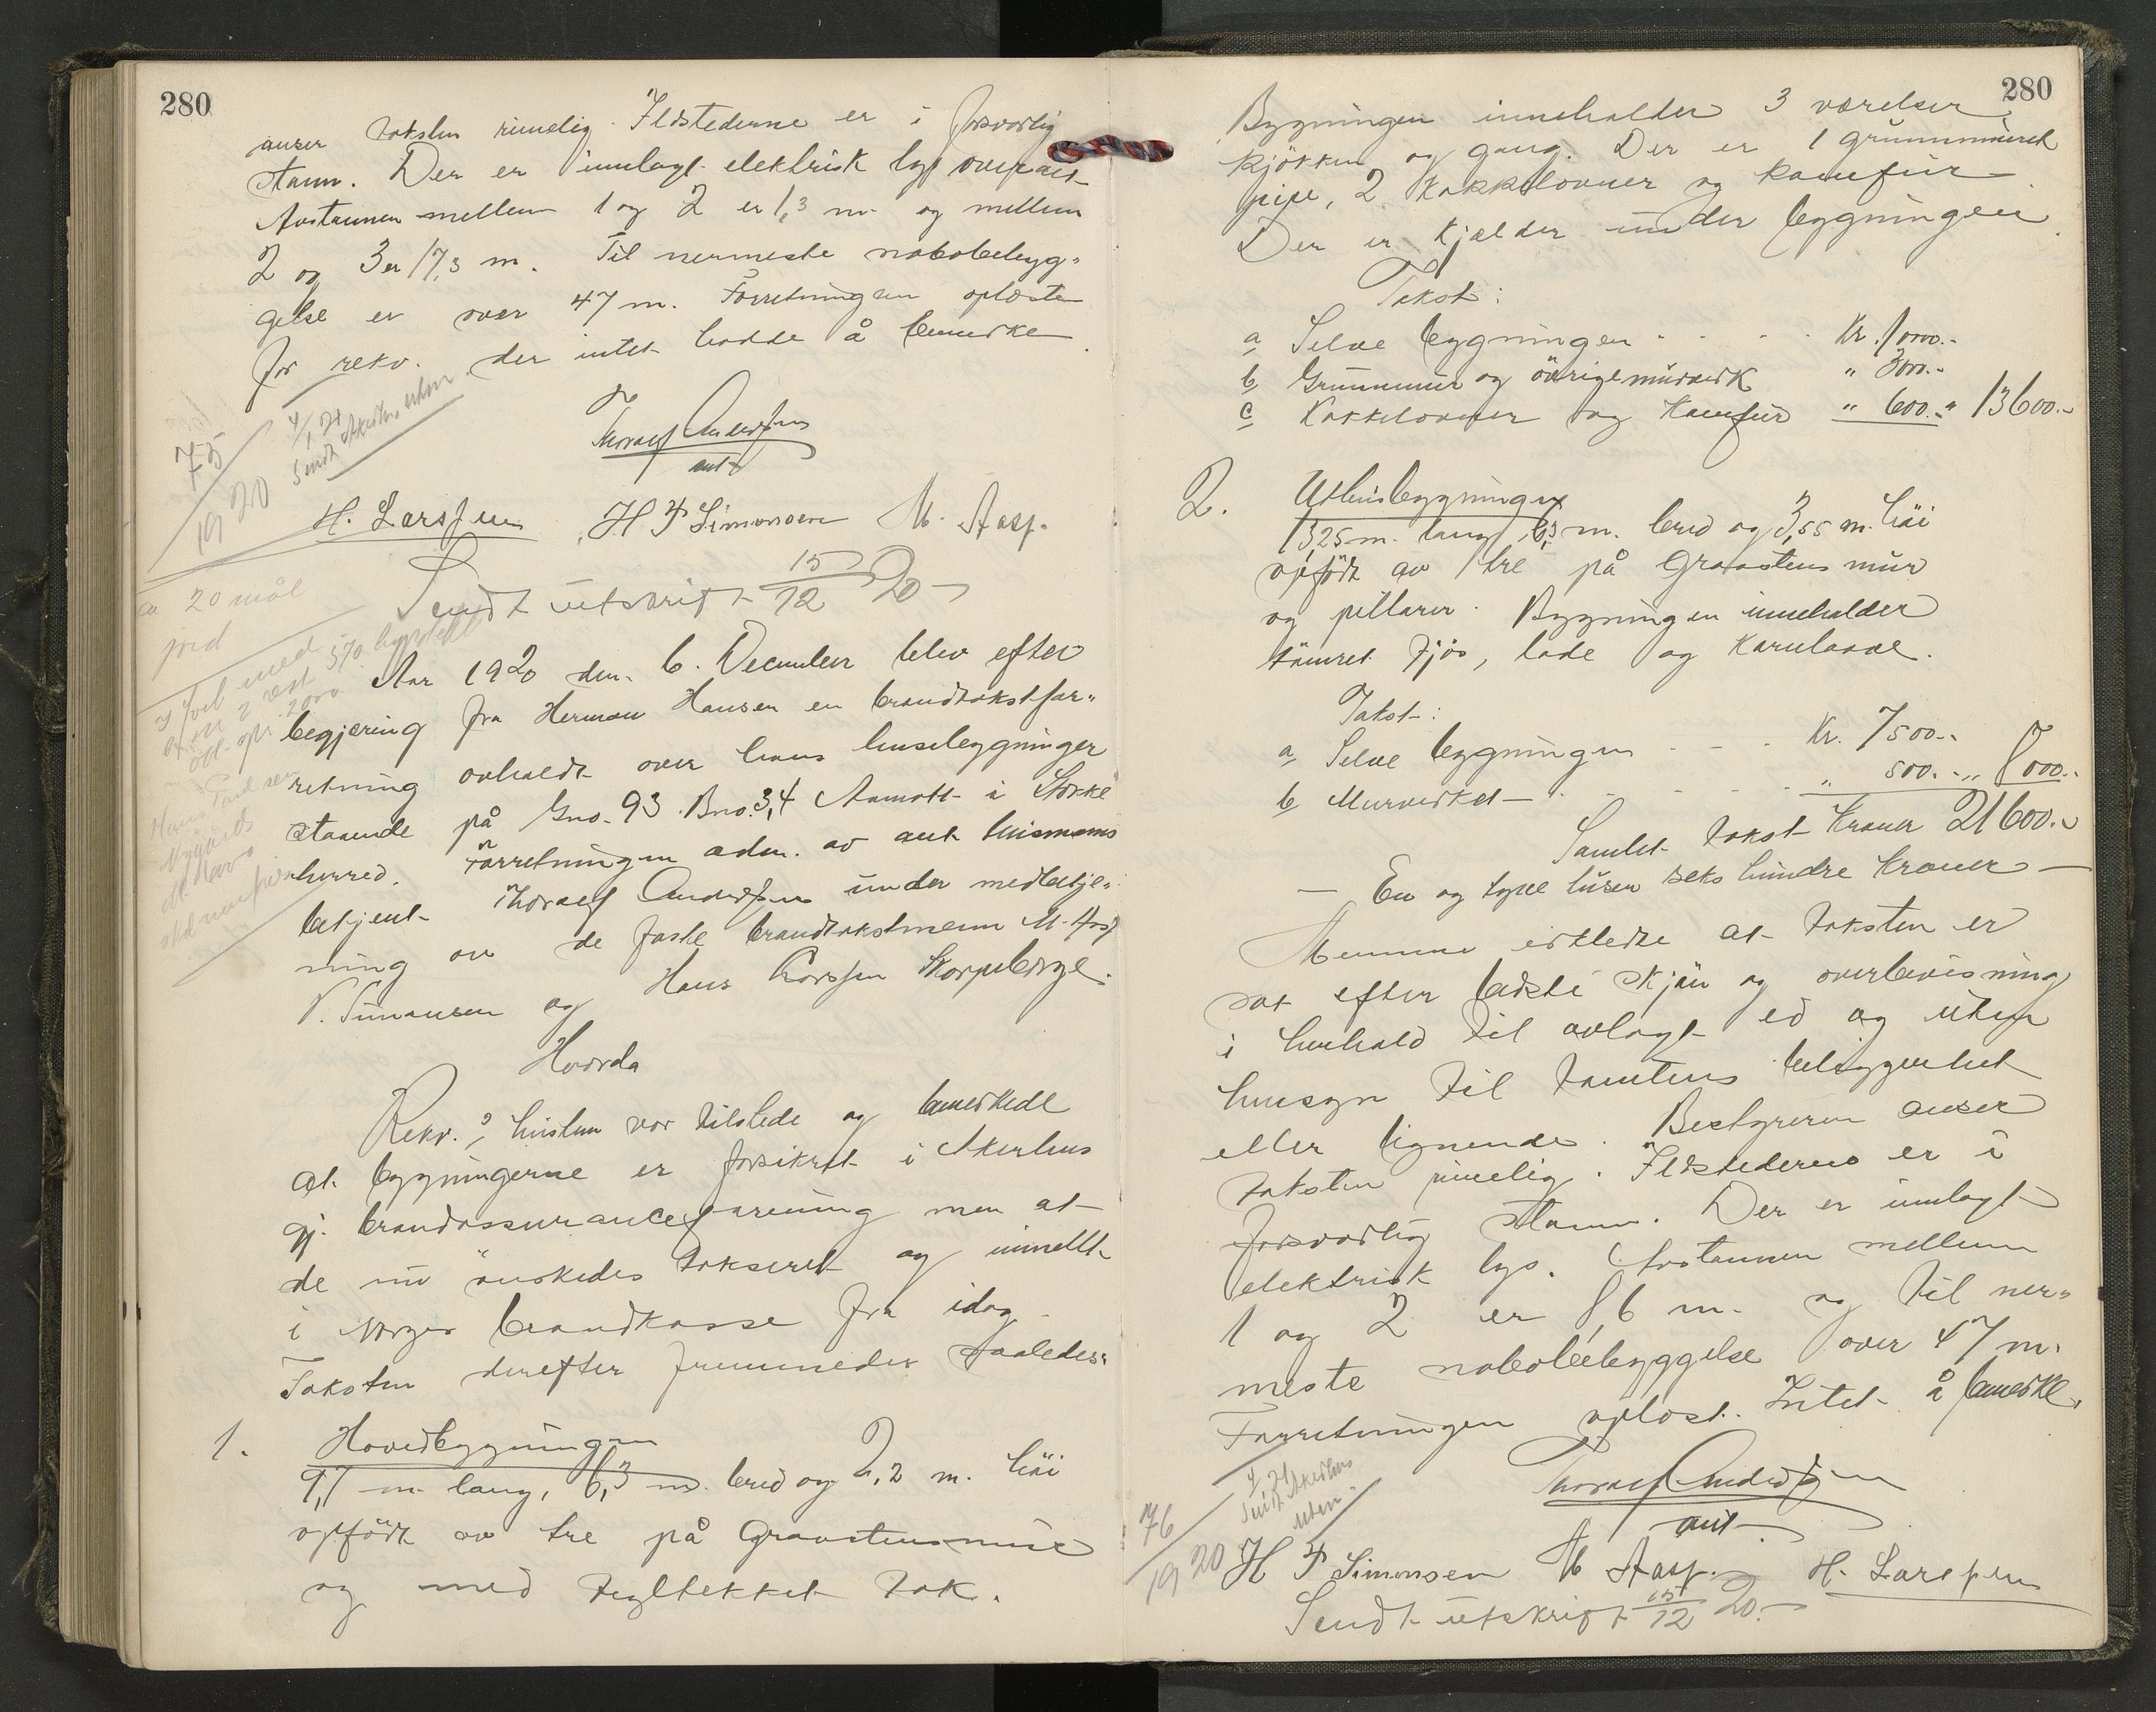 280
anser taksten rimelig. Ildstederne er i forsvarlig
stann. Der er innlagt elektrisk lys overalt
Avstannen mellem 1 og 2 er 1,3 m. og mellem
2 og 3 er 17,3 m. Til nermeste nabobebyg-
gelse er over 47 m. Forretningen oplæste
for rekv. der intet hadde å bemerke.
75
1920
4/1 21
Sendt Akerhus utskr.
Thoralf Anderssen
aut
H. Larssen H P Simonsen M. Aasp.
Sendt utskrift 15/12 20
ca 20 mål
jord
Aar 1920 den 6. December blev efter
begjæring fra Herman Hansen en brandtakstfor-
retning avholdt over hans husebygninger
staaende på Gno. 93 Bno. 3,4 Aamott i Stokke
herred. Forretningen adm. av aut lensmans
betjent Thoralf Anderssen under medbetje-
ning av de faste brandtakstmenn M. Aasp
P. Simonsen og Hans Larssen Skorpeberge.
Hvorda
Rekv.s hustru var tilstede og bemerkede
at bygningerne er forsikret i Akerhus
gj. brandassuranceforening men at
de nu önskedes takseret og innmeldt
i Norges brandkasse fra idag
Taksten derefter fremmedes saaledes:
1. Hovedbygningen
9,7 m lang, 6,3 m. bred og 2,2 m. höi
opfödt av tre på Graastensmur
og med tegltekket tak.
280
Bygningen inneholder 3 værelser
kjökken og gang. Der er 1 grunnmuret
pipe, 2 kakkelovner og komfur
Der er kjelder under bygningen.
Takst:
a Selve bygningen . . . Kr. 10000.-
b Grunnmur og övrige murverk " 3000.-
c Kakkelovner og Komfur " 600.- " 13600.-
2. Uthusbygningen
13,25 m. lang 6,3 m. bred og 3,55 m. höi
opfödt av tre på Graastens mur
og pillarer. Bygningen inneholder
tömret fjös, lade og Karnlaave.
Takst:
a Selve bygningen . . . Kr. 7500.-
b Murverket . . . " 500.- " 8000.-
Samlet takst Kroner 21600.-
— En og tyve tusen seks hundre kroner —
Mennene erklerte at taksten er
sat efter bedste skjön og overbevisning
i henhold til avlagt ed og uten
hensyn til tomtens beliggenhet
eller lignende. Bestyreren anser
taksten rimelig. Ildstederne er i
forsvarlig stann. Der er innlagt
elektrisk lys. Avstannen mellem
1 og 2 er 8,6 m. og til ner-
meste nabobebyggelse over 47 m.
Forretningen oplæst. Intet å bemerke.
76
1920
4/1 21
Sendt Akerhus
utskr.
Thoralf Anderssen
aut
H P Simonsen M Aasp. H. Larssen
Sendt utskrift 15/12 20.-